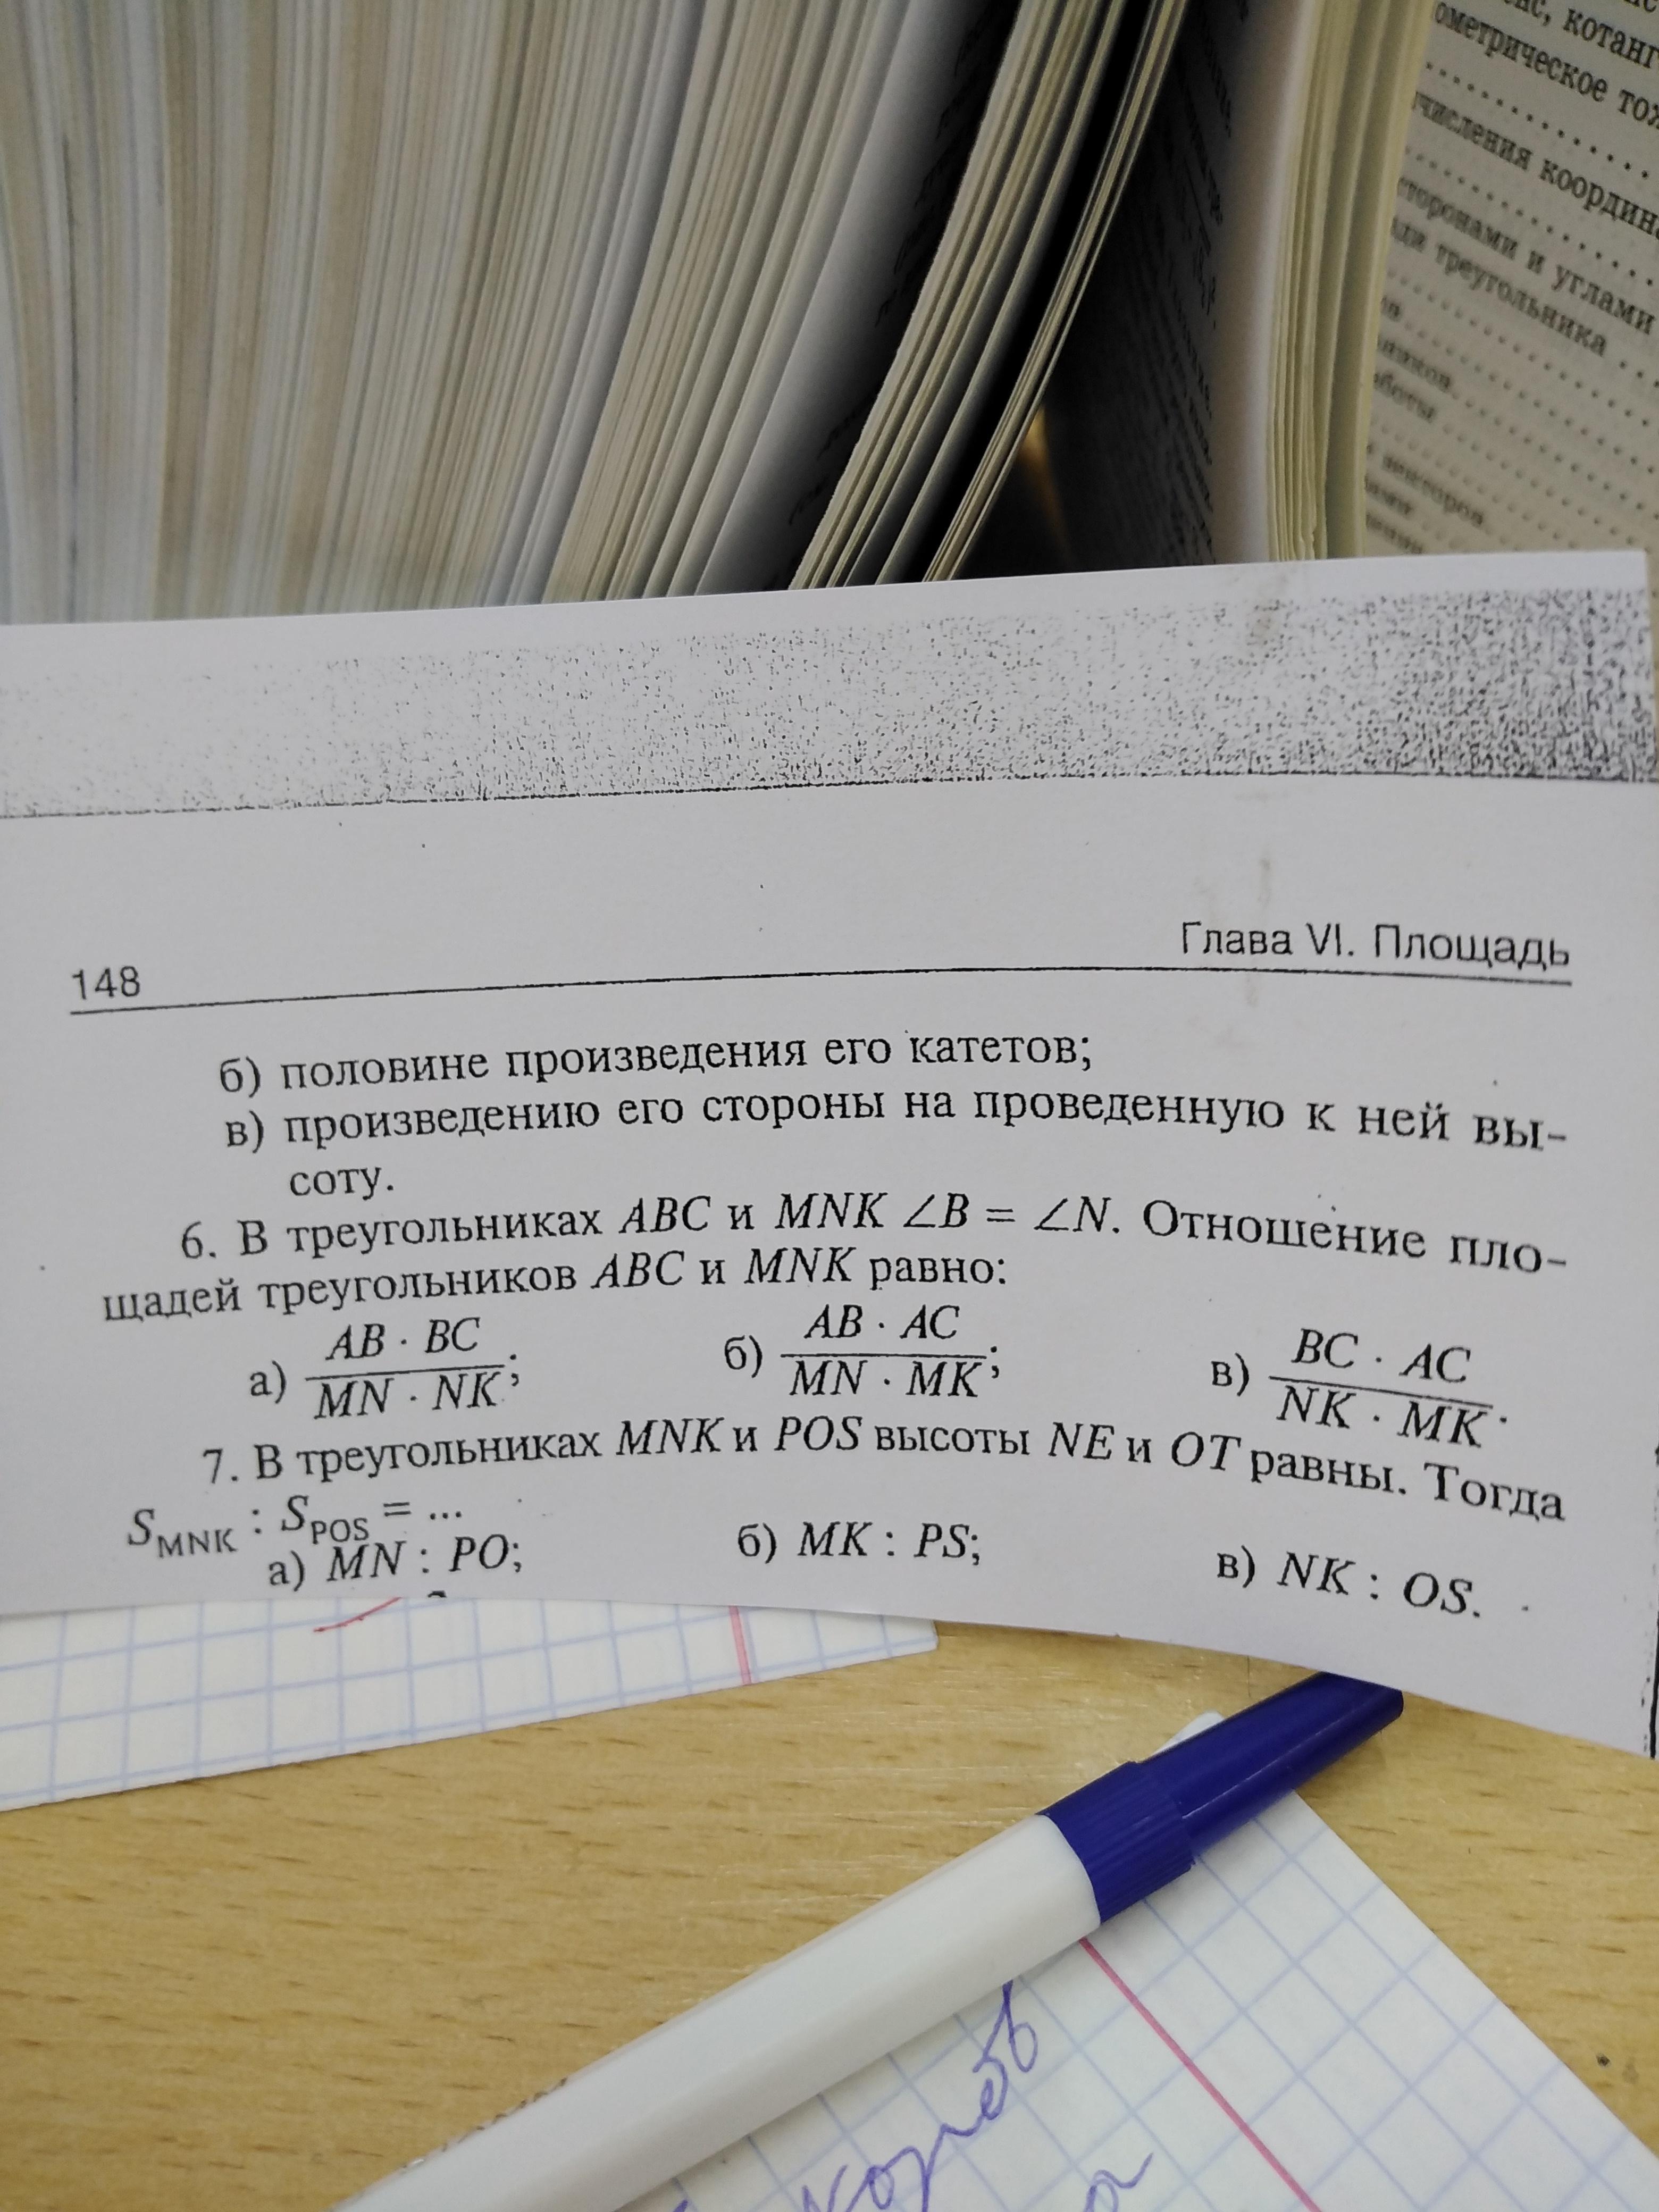 котанг
ометрическое тож
числения координа
сторонами и углами
ди треугольника
векторов
148
Глава VI. Площадь
б) половине произведения его катетов;
в) произведению его стороны на проведенную к ней вы-
соту.
6. В треугольниках ABC и MNK ∠B = ∠N. Отношение пло-
щадей треугольников ABC и MNK равно:
а) AB · BC / MN · NK; б) AB · AC / MN · MK; в) BC · AC / NK · MK.
7. В треугольниках MNK и POS высоты NE и OT равны. Тогда
S_MNK : S_POS = ...
а) MN : PO; б) MK : PS; в) NK : OS.